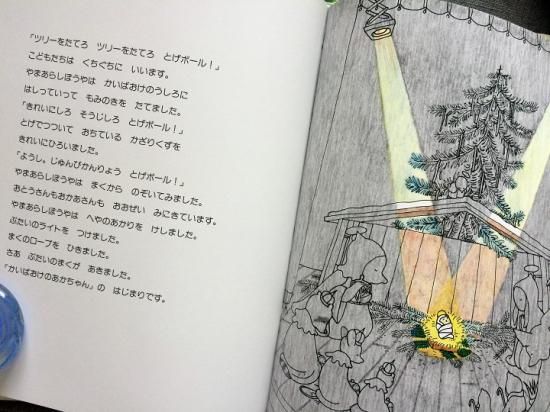 「ツリーをたてろ　ツリーをたてろ　とげボール！」
こどもたちは　くちぐちに　いいます。
やまあらしぼうやは　かいばおけのうしろに
はしっていって　もみのきを　たてました。
「きれいにしろ　そうじしろ　とげボール！」
とげでつついて　おちている　かざりくずを
きれいにひろいました。
「ようし。じゅんびかんりょう　とげボール！」
やまあらしぼうやは　まくから　のぞいてみました。
おとうさんもおかあさんも　おおぜい　みにきています。
やまあらしぼうやは　へやのあかりを　けしました。
ぶたいのライトを　つけました。
まくのロープを　ひきました。
さあ　ぶたいのまくが　あきました。
「かいばおけのあかちゃん」の　はじまりです。